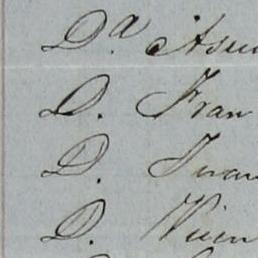 D.ª Asun
D. Fran
D. Juan
D. Vicen